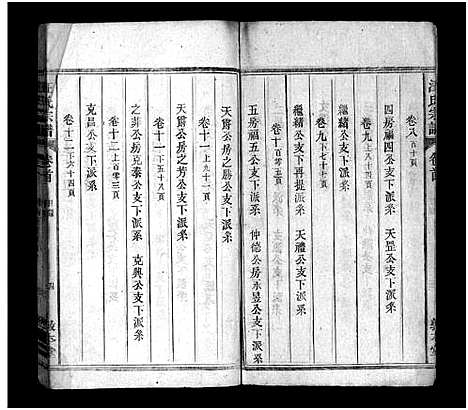 卷八 百十頁
四房福四公支下派系 天罡公支下派系
卷九 上八十四頁
繼緒公支下派系
卷九 下七十七頁
繼緒公支下再提派系 天禮公支下派系
卷十 百零五頁
五房福五公支下派系 仲德公房永昱公支下派系
卷十一 上九十一頁
天爵公房之勝公支下派系
卷十一 下五十八頁
天爵公房之芳公支下派系
卷十二 上百零三頁
之菲公房克泰公支下派系 克興公支下派系
卷十二 下六十四頁
克昌公支下派系
氏宗譜 卷首